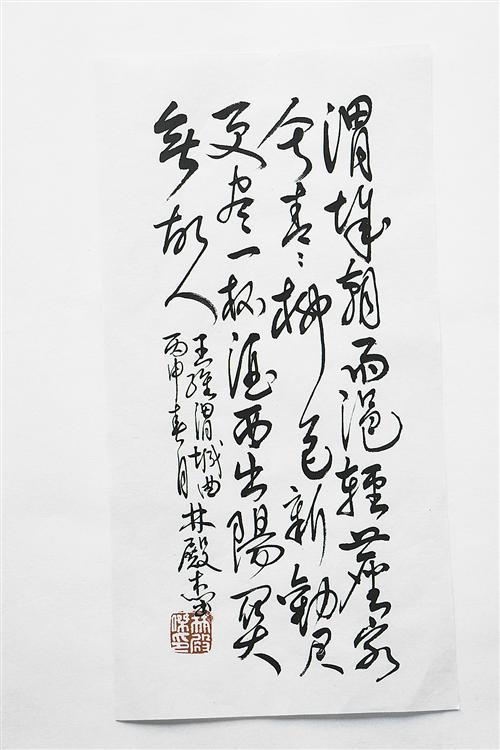 渭城朝雨浥輕塵客
舍青々柳色新勸君
更尽一杯酒西出陽関
無故人
王維渭城曲
丙申春月
林殿杰
林殿
傑印